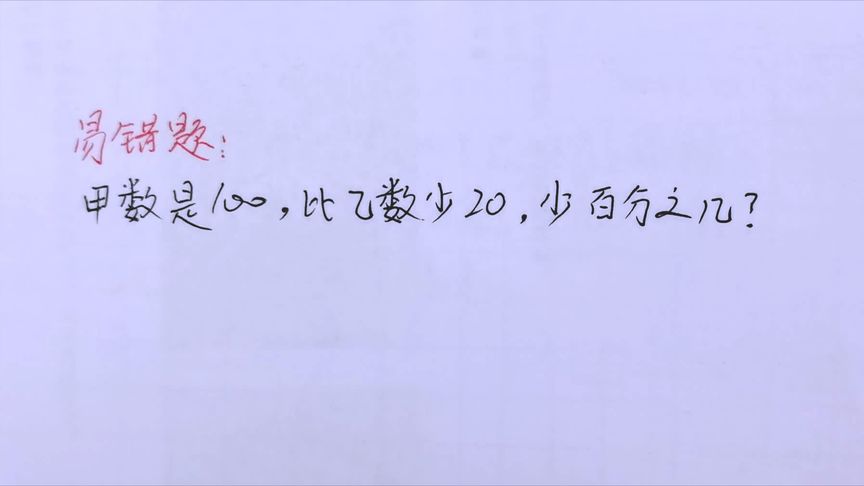 易错题:
甲数是100,比乙数少20,少百分之几?